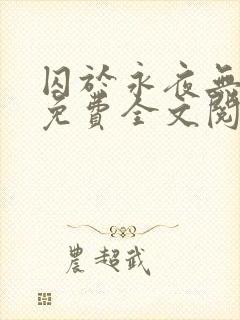 囚於永夜無
免費全文閱
農超武